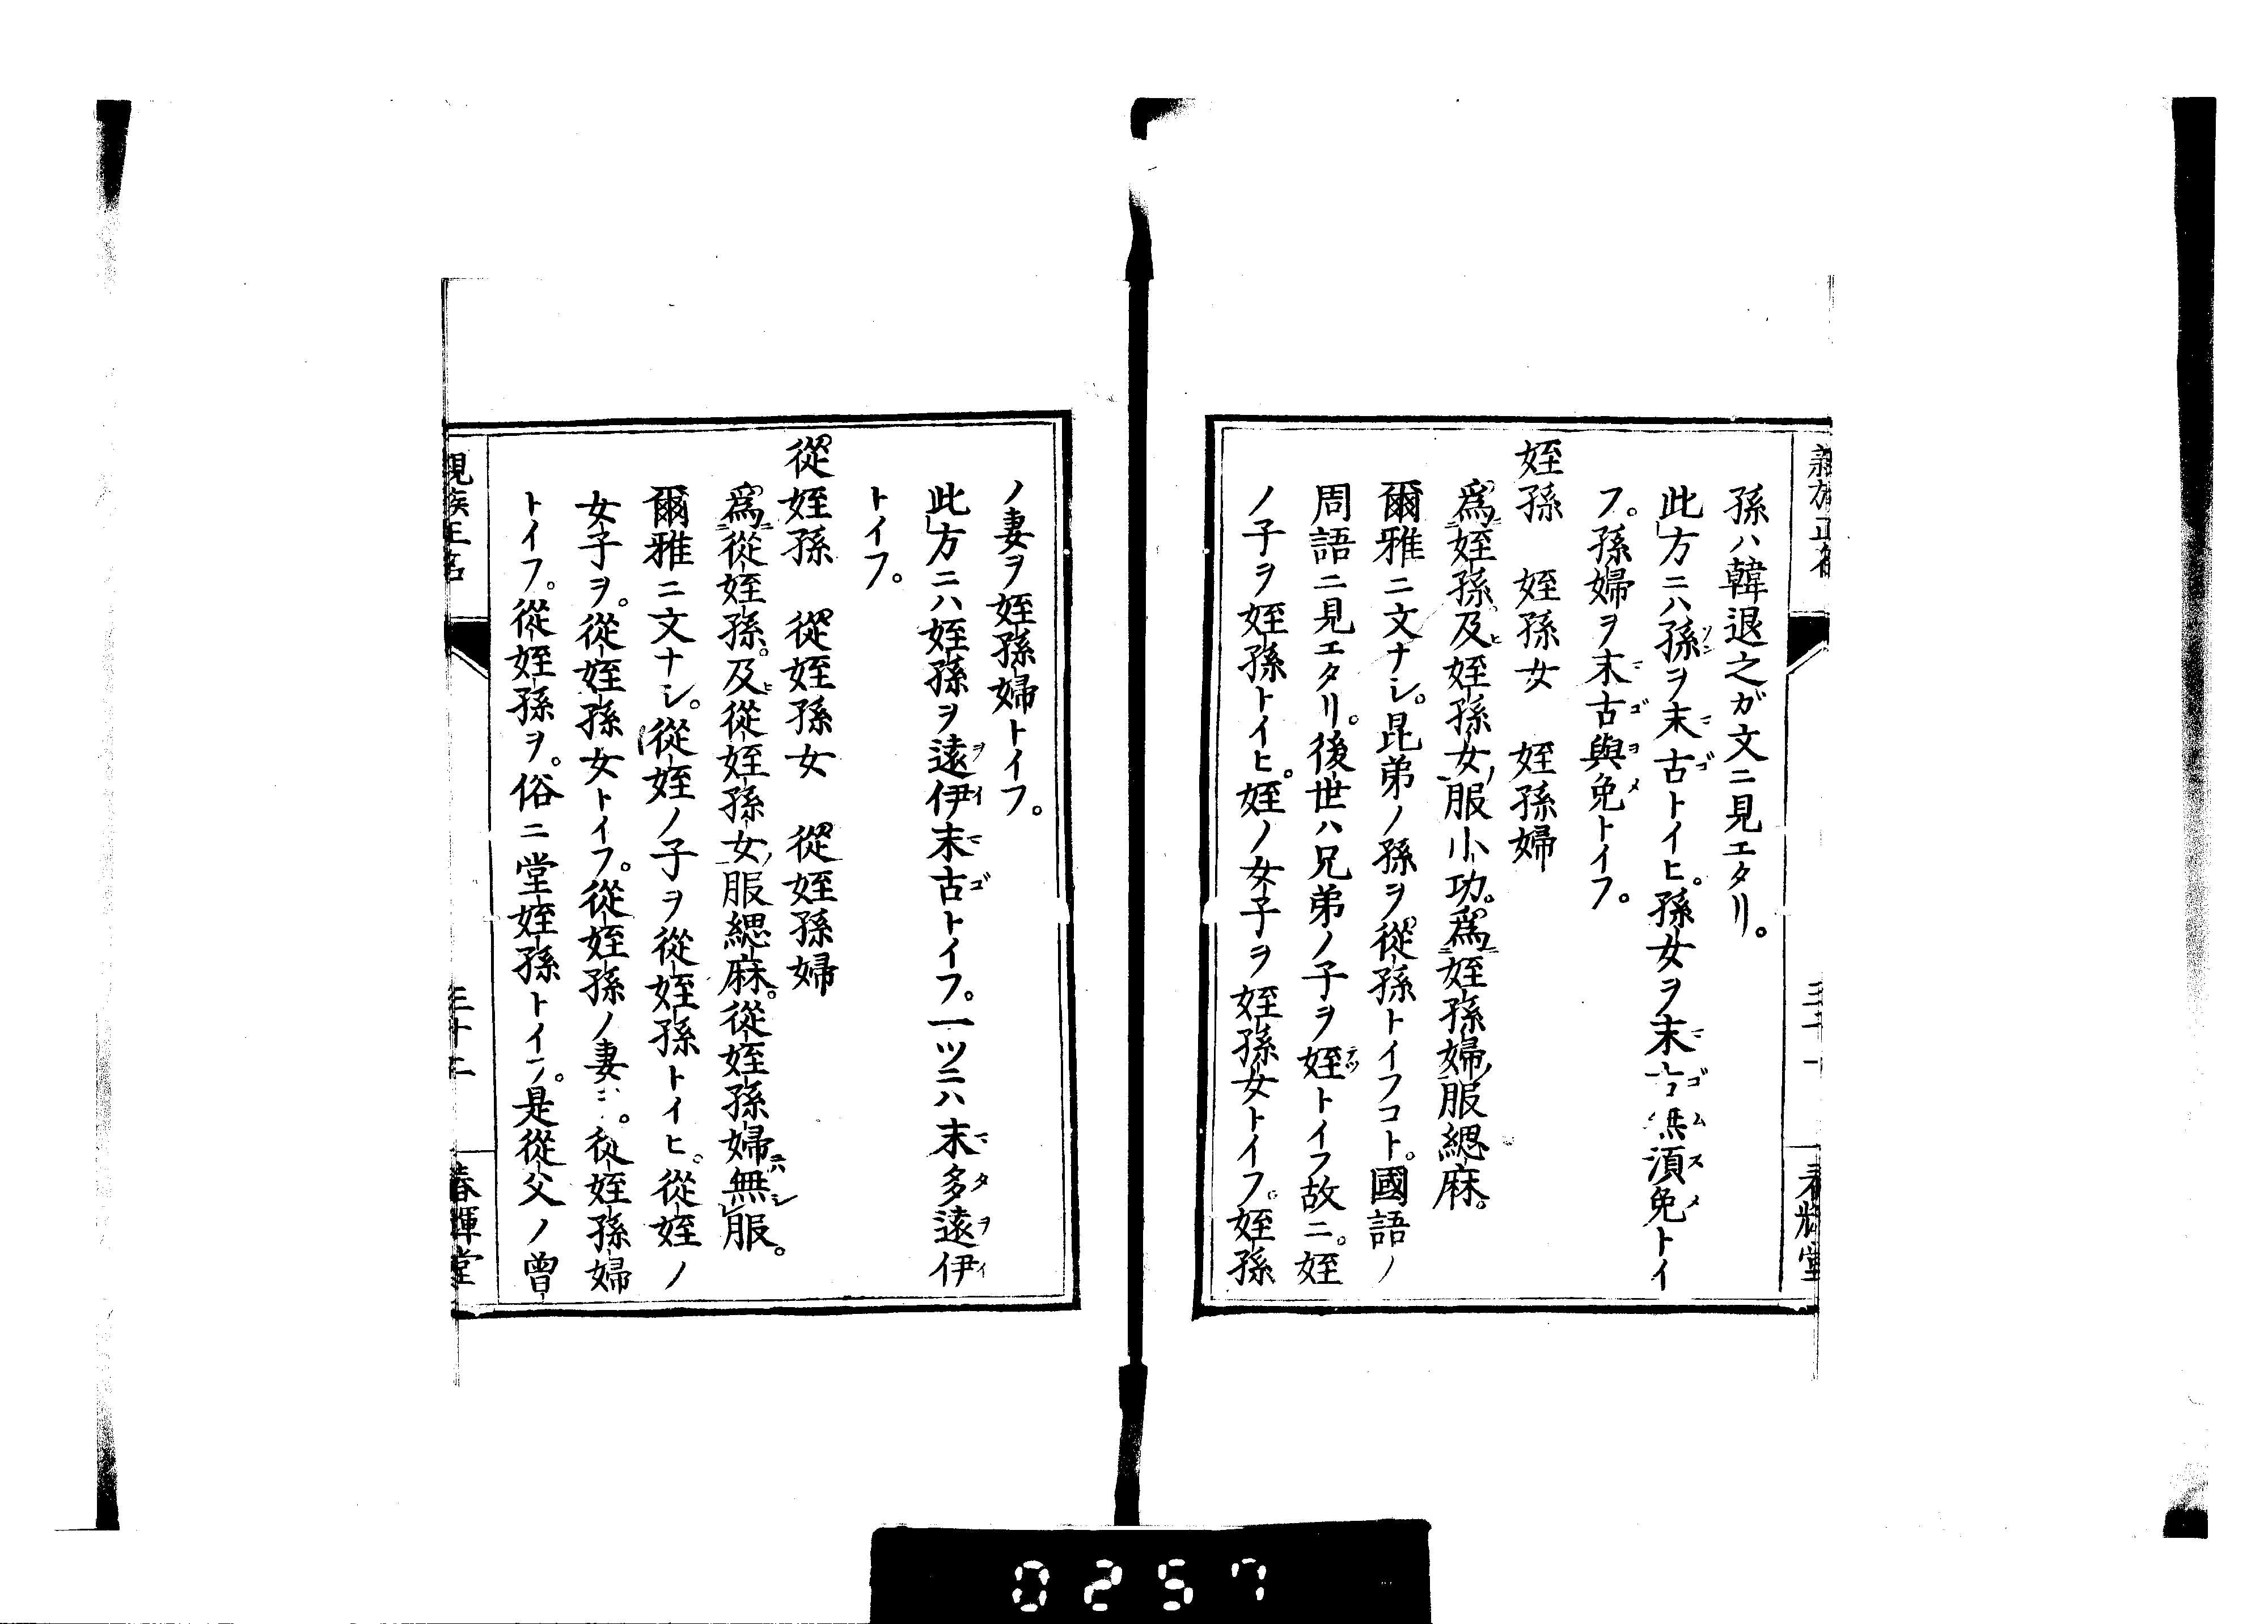 孫ハ韓退之ガ文ニ見エタリ。
此方ニハ孫ヲ末古トイヒ。孫女ヲ末古無須免トイ
フ。孫婦ヲ末古與免トイフ。
姪孫　姪孫女　姪孫婦
爲姪孫及姪孫女服小功。爲姪孫婦服緦麻。
爾雅ニ文ナシ。昆弟ノ孫ヲ從孫トイフコト。國語ノ
周語ニ見エタリ。後世ハ兄弟ノ子ヲ姪トイフ故ニ。姪
ノ子ヲ姪孫トイヒ。姪ノ女子ヲ姪孫女トイフ。姪孫
ノ妻ヲ姪孫婦トイフ。
此方ニハ姪孫ヲ遠伊末古トイフ。一ツニハ末多遠伊
トイフ。
從姪孫　從姪孫女　從姪孫婦
爲從姪孫。及從姪孫女服緦麻。從姪孫婦無服。
爾雅ニ文ナシ。從姪ノ子ヲ從姪孫トイヒ。從姪ノ
女子ヲ。從姪孫女トイフ。從姪孫ノ妻。從姪孫婦
トイフ。從姪孫ヲ。俗ニ堂姪孫トイフ。是從父ノ曾
親族正名
三十二
春輝堂
0257